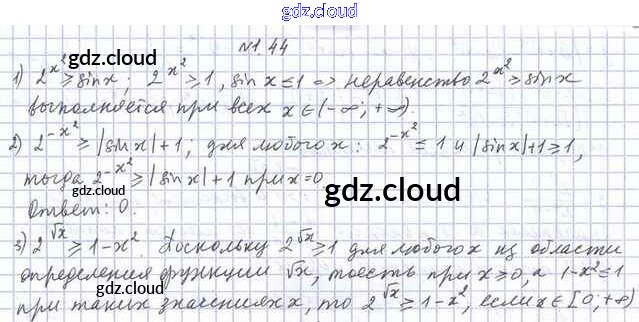 gdz.cloud
№1.44
gdz.cloud
1) 2^{x^2} ≥ sin x; 2^{x^2} ≥ 1, sin x ≤ 1 => неравенство 2^{x^2} ≥ sin x
выполняется при всех x ∈ (-∞; +∞)
gdz.cloud
2) 2^{-x^2} ≥ |sin x| + 1; для любого x: 2^{-x^2} ≤ 1 и |sin x| + 1 ≥ 1,
тогда 2^{-x^2} ≥ |sin x| + 1 при x = 0
gdz.cloud
Ответ: 0.
gdz.cloud
3) 2^{√x} ≥ 1 - x^2. Поскольку 2^{√x} ≥ 1 для любого x из области
определения функции √x, то есть при x ≥ 0, а 1 - x^2 ≤ 1
при таких значениях x, то 2^{√x} ≥ 1 - x^2, если x ∈ [0; +∞)
gdz.cloud